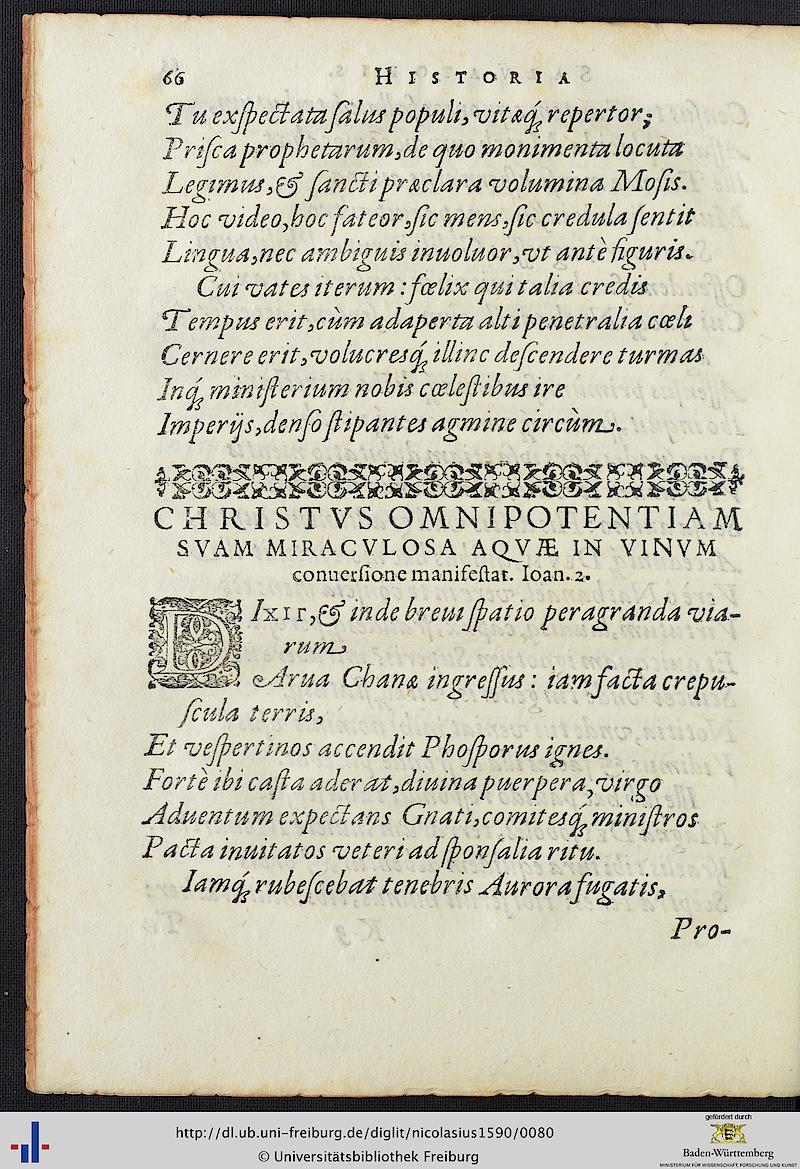 66 HISTORIA
Tu exſpectata ſalus populi, vitæq́; repertor;
Priſca prophetarum, de quo monimenta locuta
Legimus, & ſancti præclara volumina Moſis.
Hoc video, hoc fateor, ſic mens, ſic credula ſentit
Lingua, nec ambiguis inuoluor, vt antè figuris.
Cui vates iterum: fœlix qui talia credis
Tempus erit, cùm adaperta alti penetralia cœli
Cernere erit, volucresq́; illinc deſcendere turmas
Inq́; miniſterium nobis cœleſtibus ire
Imperijs, denſo ſtipantes agmine circùm.
CHRISTVS OMNIPOTENTIAM
SVAM MIRACVLOSA AQVÆ IN VINVM
conuerſione manifeſtat. Ioan. 2.
DIxit, & inde breui ſpatio peragranda via-
rum
Arua Chanæ ingreſſus: iam facta crepu-
ſcula terris,
Et veſpertinos accendit Phoſporus ignes.
Fortè ibi caſta aderat, diuina puerpera, virgo
Aduentum expectans Gnati, comitesq́; miniſtros
Pacta inuitatos veteri ad ſponſalia ritu.
Iamq́; rubeſcebat tenebris Aurora fugatis,
Pro-
http://dl.ub.uni-freiburg.de/diglit/nicolasius1590/0080
© Universitätsbibliothek Freiburg
gefördert durch
Baden-Württemberg
MINISTERIUM FÜR WISSENSCHAFT, FORSCHUNG UND KUNST